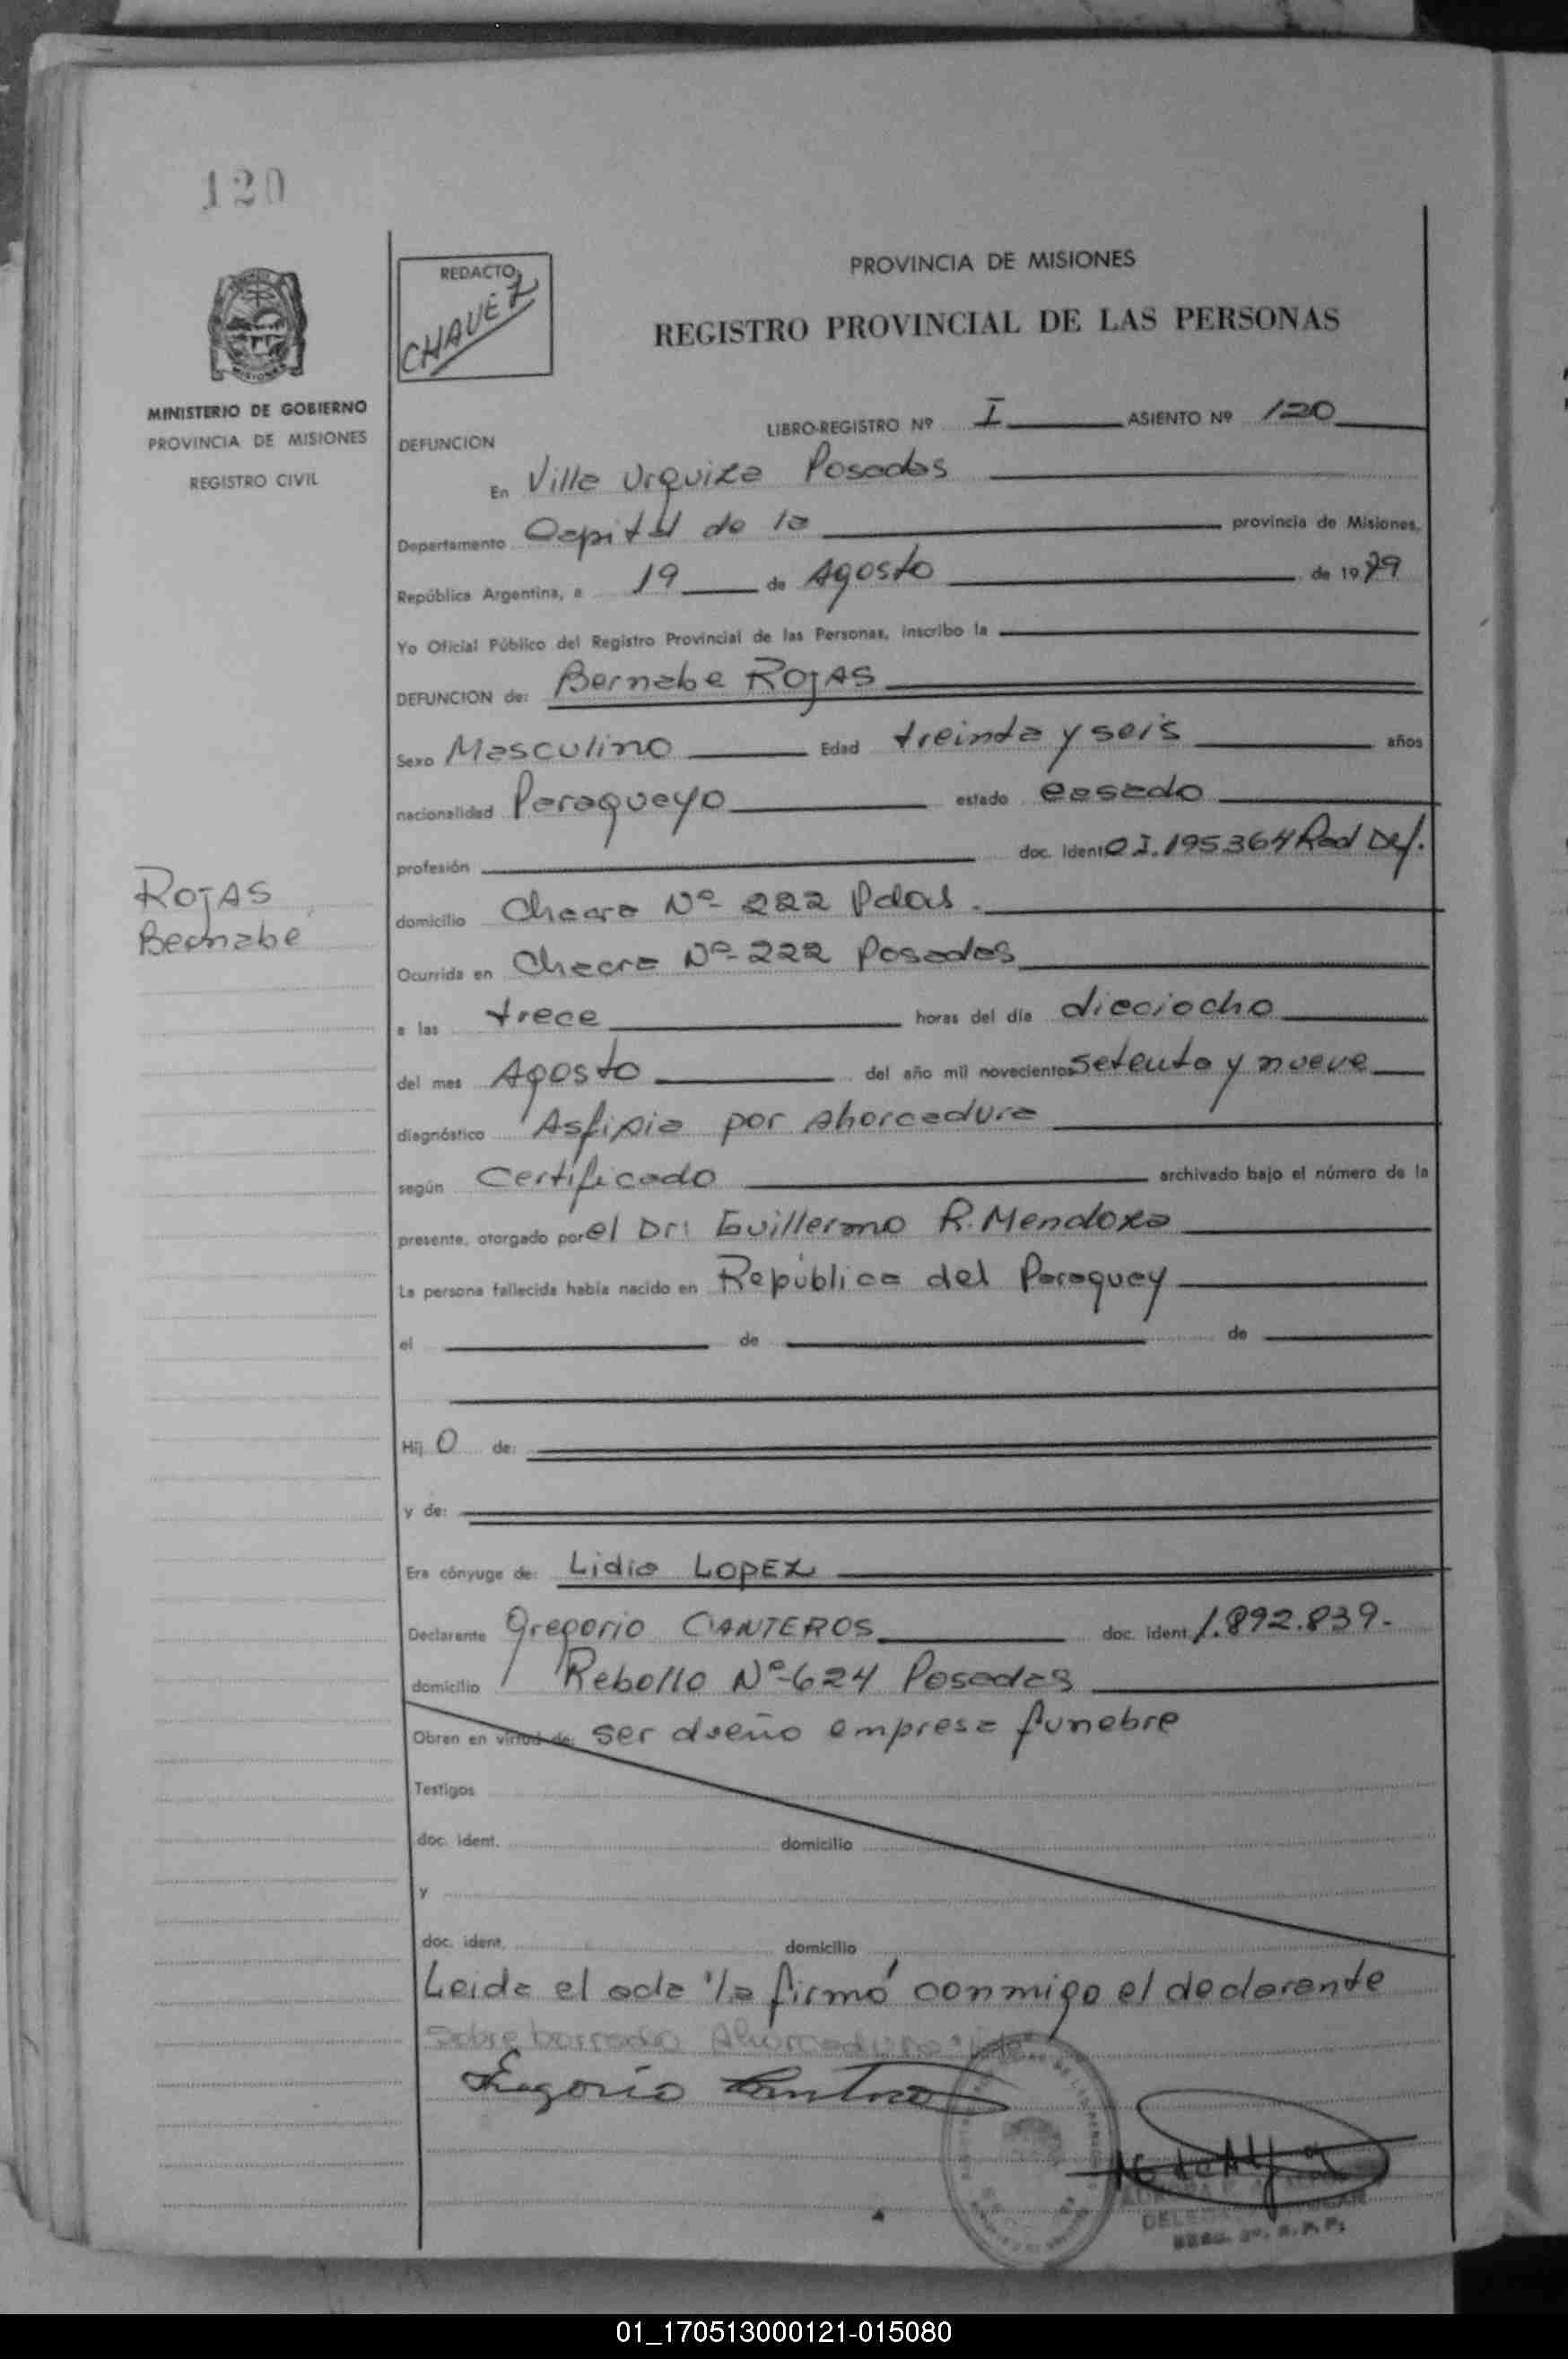 120
REDACTO
CHAVEZ
PROVINCIA DE MISIONES
REGISTRO PROVINCIAL DE LAS PERSONAS
MINISTERIO DE GOBIERNO
PROVINCIA DE MISIONES
REGISTRO CIVIL
LIBRO-REGISTRO Nº I ASIENTO Nº 120
DEFUNCION
En Villa Urquiza Posadas
Departamento Capital de la provincia de Misiones,
República Argentina, a 19 de Agosto de 1979
Yo Oficial Público del Registro Provincial de las Personas, inscribo la
DEFUNCION de: Bernabe ROJAS
Sexo Masculino Edad treinta y seis años
nacionalidad Paraguayo estado casado
profesión doc. ident. C I. 195364 Rad Def.
ROJAS
Bernabe
domicilio Chacra Nº 222 Pdas.
Ocurrida en Chacra Nº 222 Posadas
a las trece horas del día dieciocho
del mes Agosto del año mil novecientos setenta y nueve
diagnóstico Asfixia por ahorcadura
según Certificado archivado bajo el número de la
presente, otorgado por el Dr: Guillermo R. Mendoza
La persona fallecida había nacido en República del Paraguay
el de de
Hij o de:
y de:
Era cónyuge de: Lidia LOPEZ
Declarante Gregorio CANTEROS doc. ident. 1.892.839.-
domicilio Rebollo Nº 624 Posadas
Obran en virtud de: ser dueño empresa funebre
Testigos
doc. ident. domicilio
y
doc. ident. domicilio
Leida el acta la firmó conmigo el declarante
Sobre borrado Ahorcadura
Gregorio Canteros
01_170513000121-015080